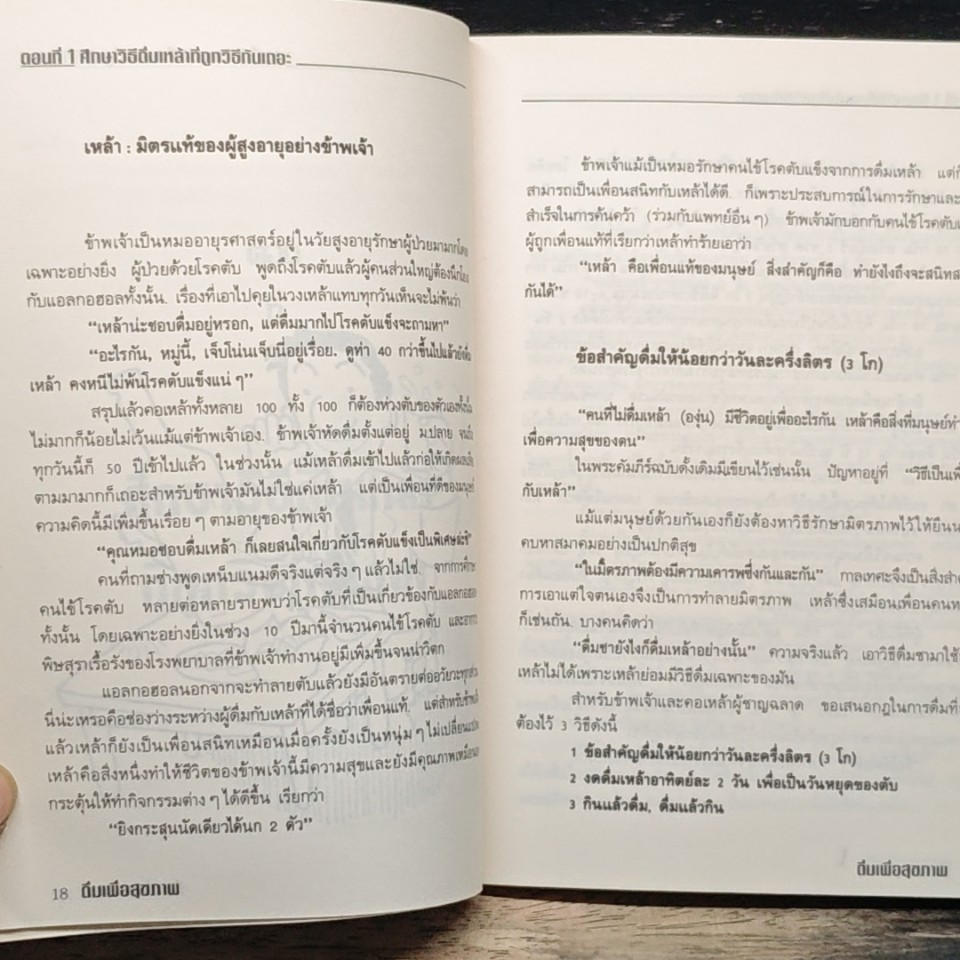 ตอนที่ 1 ศึกษาวิธีดื่มเหล้าที่ถูกวิธีกันเถอะ
เหล้า : มิตรแท้ของผู้สูงอายุอย่างข้าพเจ้า
ข้าพเจ้าเป็นหมออายุรศาสตร์อยู่ในวัยสูงอายุรักษาผู้ป่วยมามากโดย
เฉพาะอย่างยิ่ง ผู้ป่วยด้วยโรคตับ พูดถึงโรคตับแล้วผู้คนส่วนใหญ่ต้องนึกโยง
กับแอลกอฮอลทั้งนั้น. เรื่องที่เอาไปคุยในวงเหล้าแทบทุกวันเห็นจะไม่พ้นว่า
“เหล้าน่ะชอบดื่มอยู่หรอก, แต่ดื่มมากไปโรคตับแข็งจะถามหา”
“อะไรกัน, หมู่นี้, เจ็บโน่นเจ็บนี่อยู่เรื่อย. ดูท่า 40 กว่าขึ้นไปแล้วยังดื่ม
เหล้า คงหนีไม่พ้นโรคตับแข็งแน่ ๆ”
สรุปแล้วคอเหล้าทั้งหลาย 100 ทั้ง 100 ก็ต้องห่วงตับของตัวเองทั้งนั้น
ไม่มากก็น้อยไม่เว้นแม้แต่ข้าพเจ้าเอง. ข้าพเจ้าหัดดื่มตั้งแต่อยู่ ม.ปลาย จนถึง
ทุกวันนี้ก็ 50 ปีเข้าไปแล้ว ในช่วงนั้น แม้เหล้าดื่มเข้าไปแล้วก่อให้เกิดผลเสีย
ตามมามากก็เถอะสำหรับข้าพเจ้ามันไม่ใช่แค่เหล้า แต่เป็นเพื่อนที่ดีของมนุษย์
ความคิดนี้มีเพิ่มขึ้นเรื่อย ๆ ตามอายุของข้าพเจ้า
“คุณหมอชอบดื่มเหล้า ก็เลยสนใจเกี่ยวกับโรคตับแข็งเป็นพิเศษล่ะซิ”
คนที่ถามช่างพูดเหน็บแนมดีจริงแต่จริง ๆ แล้วไม่ใช่. จากการศึกษา
คนไข้โรคตับ หลายต่อหลายรายพบว่าโรคตับที่เป็นเกี่ยวข้องกับแอลกอฮอล
ทั้งนั้น โดยเฉพาะอย่างยิ่งในช่วง 10 ปีมานี้จำนวนคนไข้โรคตับ และอาการ
พิษสุราเรื้อรังของโรงพยาบาลที่ข้าพเจ้าทำงานอยู่มีเพิ่มขึ้นจนน่าวิตก
แอลกอฮอลนอกจากจะทำลายตับแล้วยังมีอันตรายต่ออวัยวะทุกส่วน
นี่น่ะเหรอคือช่องว่างระหว่างผู้ดื่มกับเหล้าที่ได้ชื่อว่าเพื่อนแท้. แต่สำหรับข้าพเจ้า
แล้วเหล้าก็ยังเป็นเพื่อนสนิทเหมือนเมื่อครั้งยังเป็นหนุ่ม ๆ ไม่เปลี่ยนแปลง
เหล้าคือสิ่งหนึ่งทำให้ชีวิตของข้าพเจ้านี้มีความสุขและยังมีคุณภาพเหมือน
กระตุ้นให้ทำกิจกรรมต่าง ๆ ได้ดีขึ้น เรียกว่า
“ยิงกระสุนนัดเดียวได้นก 2 ตัว”
18 ดื่มเพื่อสุขภาพ
ข้าพเจ้าแม้เป็นหมอรักษาคนไข้โรคตับแข็งจากการดื่มเหล้า แต่ก็
สามารถเป็นเพื่อนสนิทกับเหล้าได้ดี. ก็เพราะประสบการณ์ในการรักษาและ
สำเร็จในการค้นคว้า (ร่วมกับแพทย์อื่น ๆ) ข้าพเจ้ามักบอกกับคนไข้โรคตับ
ผู้ถูกเพื่อนแท้ที่เรียกว่าเหล้าทำร้ายเอาว่า
“เหล้า คือเพื่อนแท้ของมนุษย์ สิ่งสำคัญก็คือ ทำยังไงถึงจะสนิทส
กันได้”
ข้อสำคัญดื่มให้น้อยกว่าวันละครึ่งลิตร (3 โก)
“คนที่ไม่ดื่มเหล้า (องุ่น) มีชีวิตอยู่เพื่ออะไรกัน เหล้าคือสิ่งที่มนุษย์ทำ
เพื่อความสุขของตน”
ในพระคัมภีร์ฉบับดั้งเดิมมีเขียนไว้เช่นนั้น ปัญหาอยู่ที่ “วิธีเป็นเพื่
กับเหล้า”
แม้แต่มนุษย์ด้วยกันเองก็ยังต้องหาวิธีรักษามิตรภาพไว้ให้ยืนน
คบหาสมาคมอย่างเป็นปกติสุข
“ในมิตรภาพต้องมีความเคารพซึ่งกันและกัน” กาลเทศะจึงเป็นสิ่งสำค
การเอาแต่ใจตนเองจึงเป็นการทำลายมิตรภาพ เหล้าซึ่งเสมือนเพื่อนคนห
ก็เช่นกัน. บางคนคิดว่า
“ดื่มชายังไงก็ดื่มเหล้าอย่างนั้น” ความจริงแล้ว เอาวิธีดื่มชามาใช้
เหล้าไม่ได้เพราะเหล้าย่อมมีวิธีดื่มเฉพาะของมัน
สำหรับข้าพเจ้าและคอเหล้าผู้ชาญฉลาด ขอเสนอกฎในการดื่มที่
ต้องไว้ 3 วิธีดังนี้
1 ข้อสำคัญดื่มให้น้อยกว่าวันละครึ่งลิตร (3 โก)
2 งดดื่มเหล้าอาทิตย์ละ 2 วัน เพื่อเป็นวันหยุดของตับ
3 กินแล้วดื่ม, ดื่มแล้วกิน
ดื่มเพื่อสุขภาพ